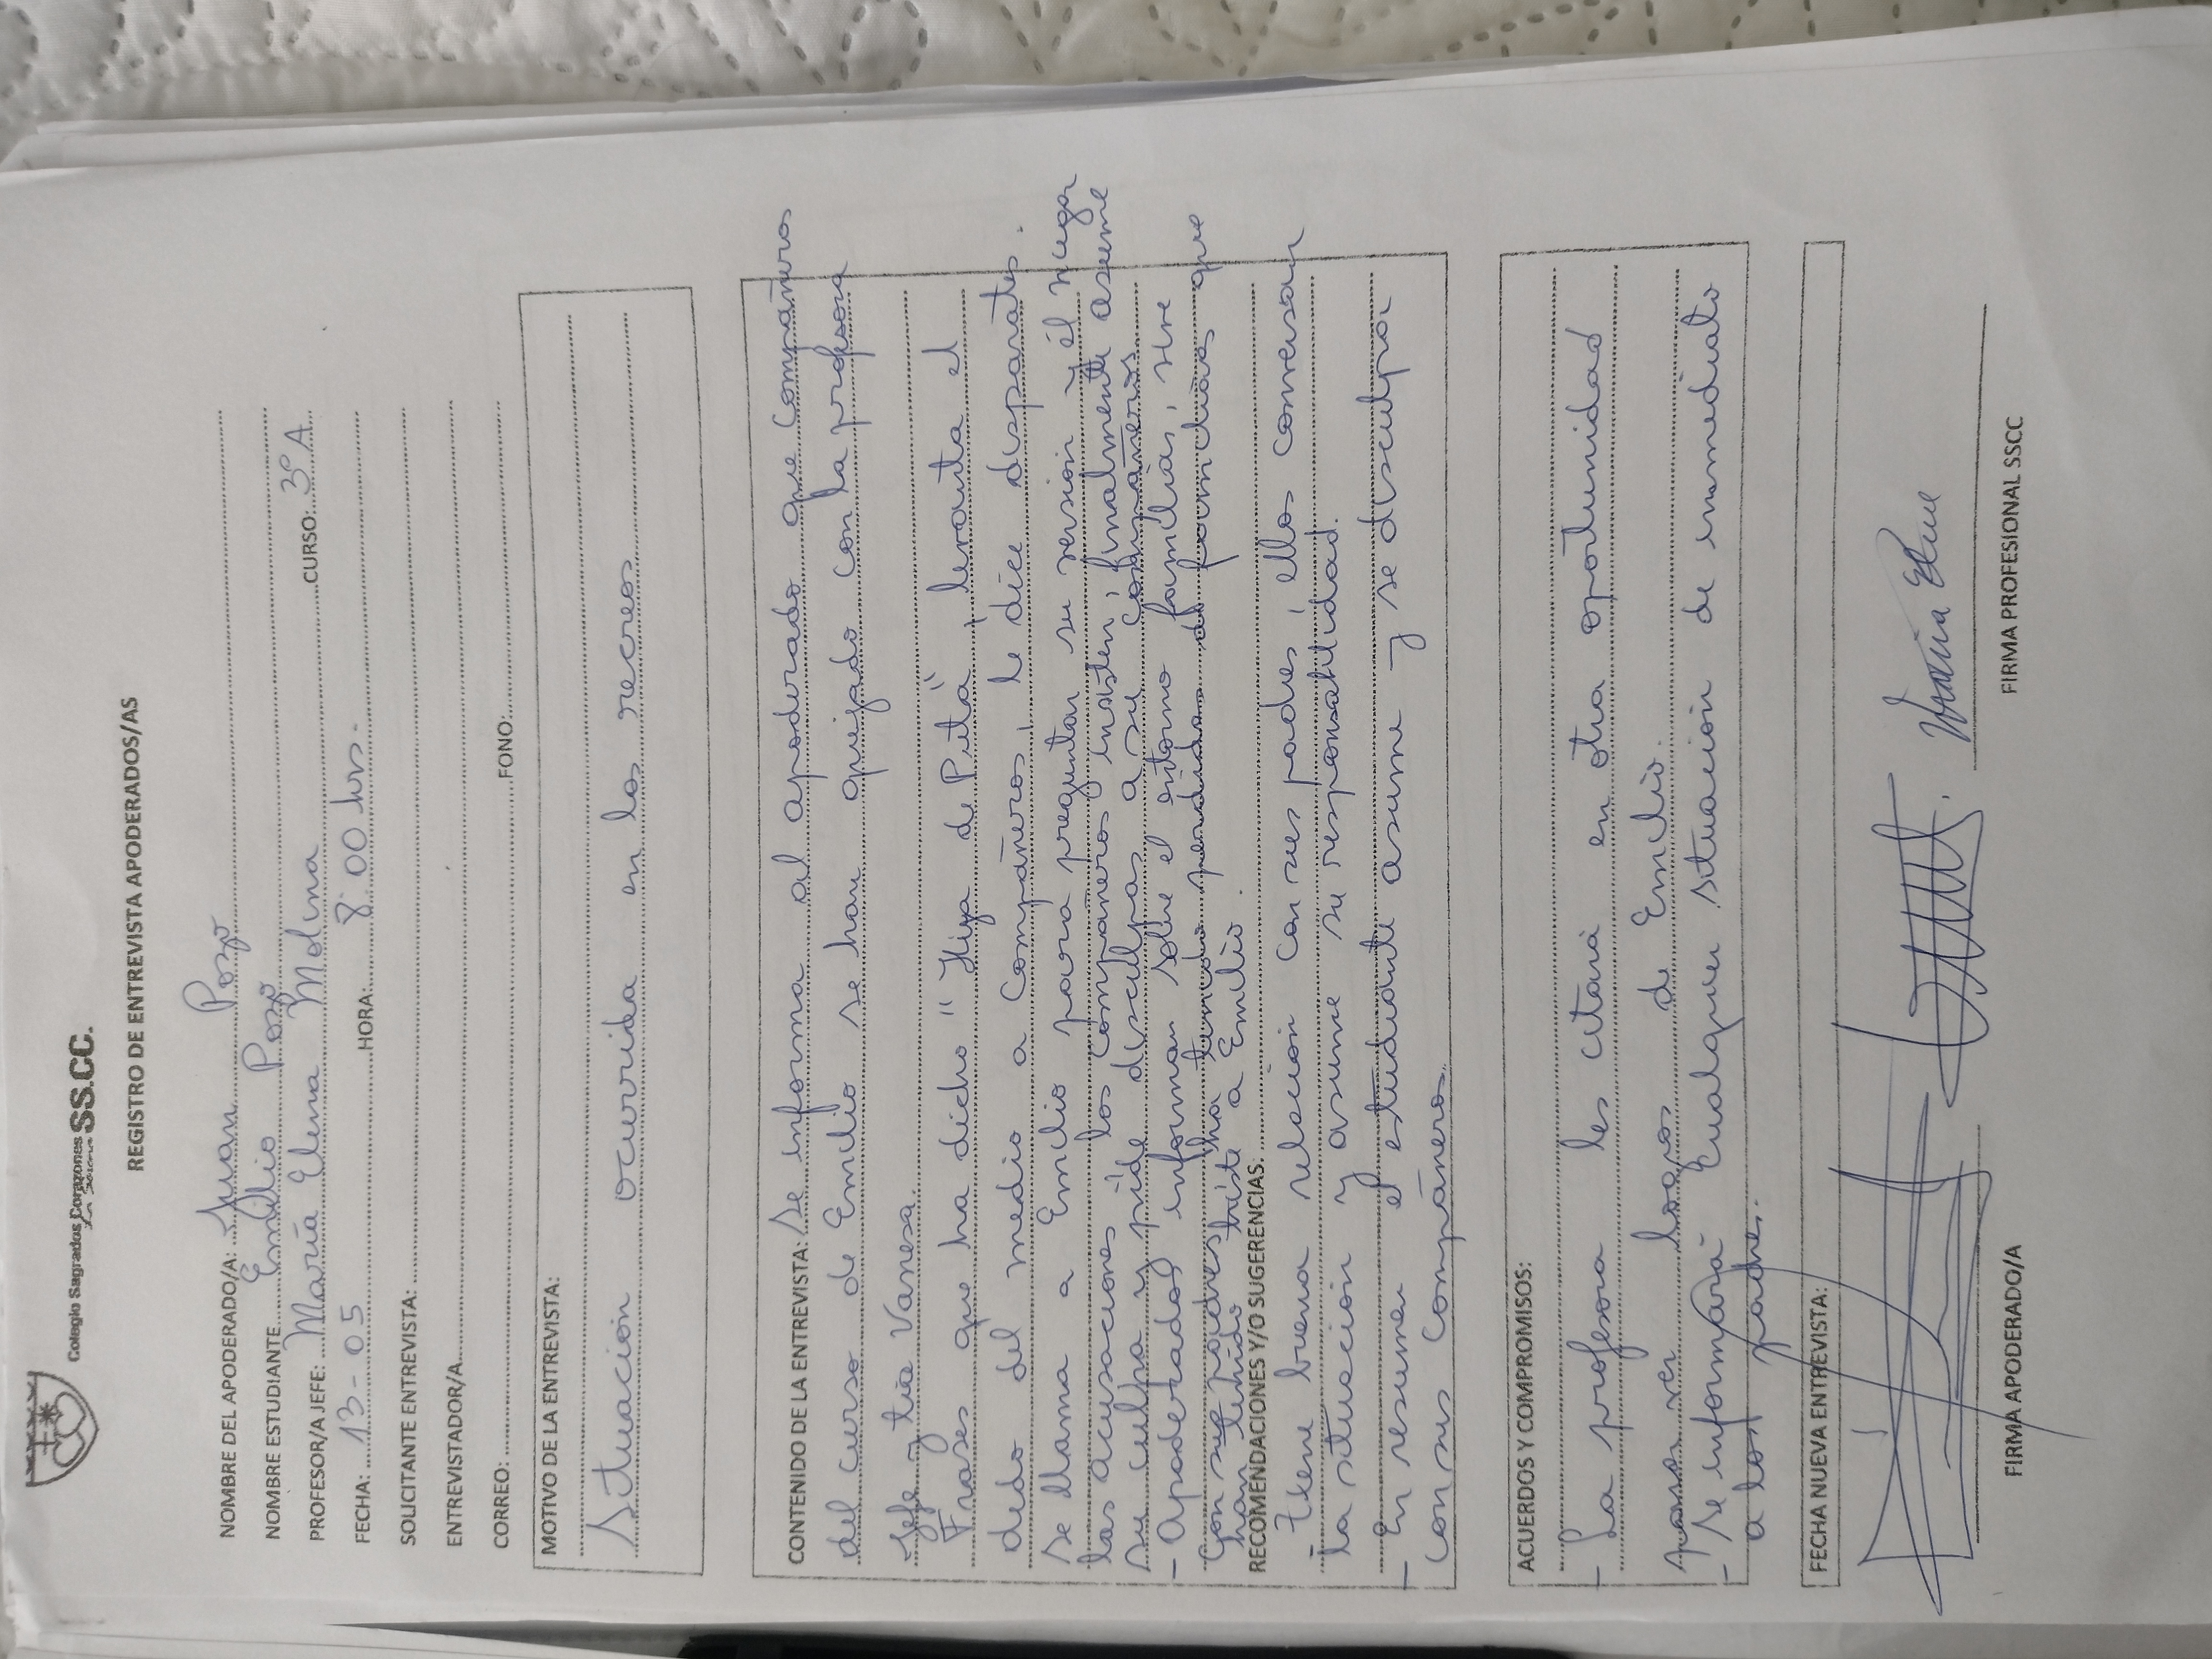 Colegio Sagrados Corazones SS.CC.
REGISTRO DE ENTREVISTA APODERADOS/AS
NOMBRE DEL APODERADO/A: Juan Pozo
NOMBRE ESTUDIANTE Emilio Pozo
PROFESOR/A JEFE: María Elena Molina CURSO: 3º A
FECHA: 13-05 HORA: 8:00 hrs.
SOLICITANTE ENTREVISTA:
ENTREVISTADOR/A
CORREO: FONO:
MOTIVO DE LA ENTREVISTA:
Situación ocurrida en los recreos
CONTENIDO DE LA ENTREVISTA: Se informa al apoderado que compañeros
del curso de Emilio se han quejado con la profesora
Jefe y tía Vanesa.
Frases que ha dicho "Hija de Puta", levanta el
dedo del medio a compañeros, le dice disparates.
Se llama a Emilio para preguntar su versión y él negar
las acusaciones los compañeros insisten, finalmente asume
su culpa y pide disculpas a su compañeros
- Apoderados informan sobre el entorno familiar, vive
con sus padres, ha tenido perdidas de familiares que
han tenido triste a Emilio.
RECOMENDACIONES Y/O SUGERENCIAS:
Tiene buena relación con sus padres, ellos conversan
la situación y asume su responsabilidad.
- En resumen el estudiante asume y se disculpa
con sus compañeros.
ACUERDOS Y COMPROMISOS:
- La profesora les citará en otra oportunidad
para ver logros de Emilio.
- Se informará cualquier situación de inmediato
a los padres.
FECHA NUEVA ENTREVISTA:
María Elena
FIRMA APODERADO/A FIRMA PROFESIONAL SSCC